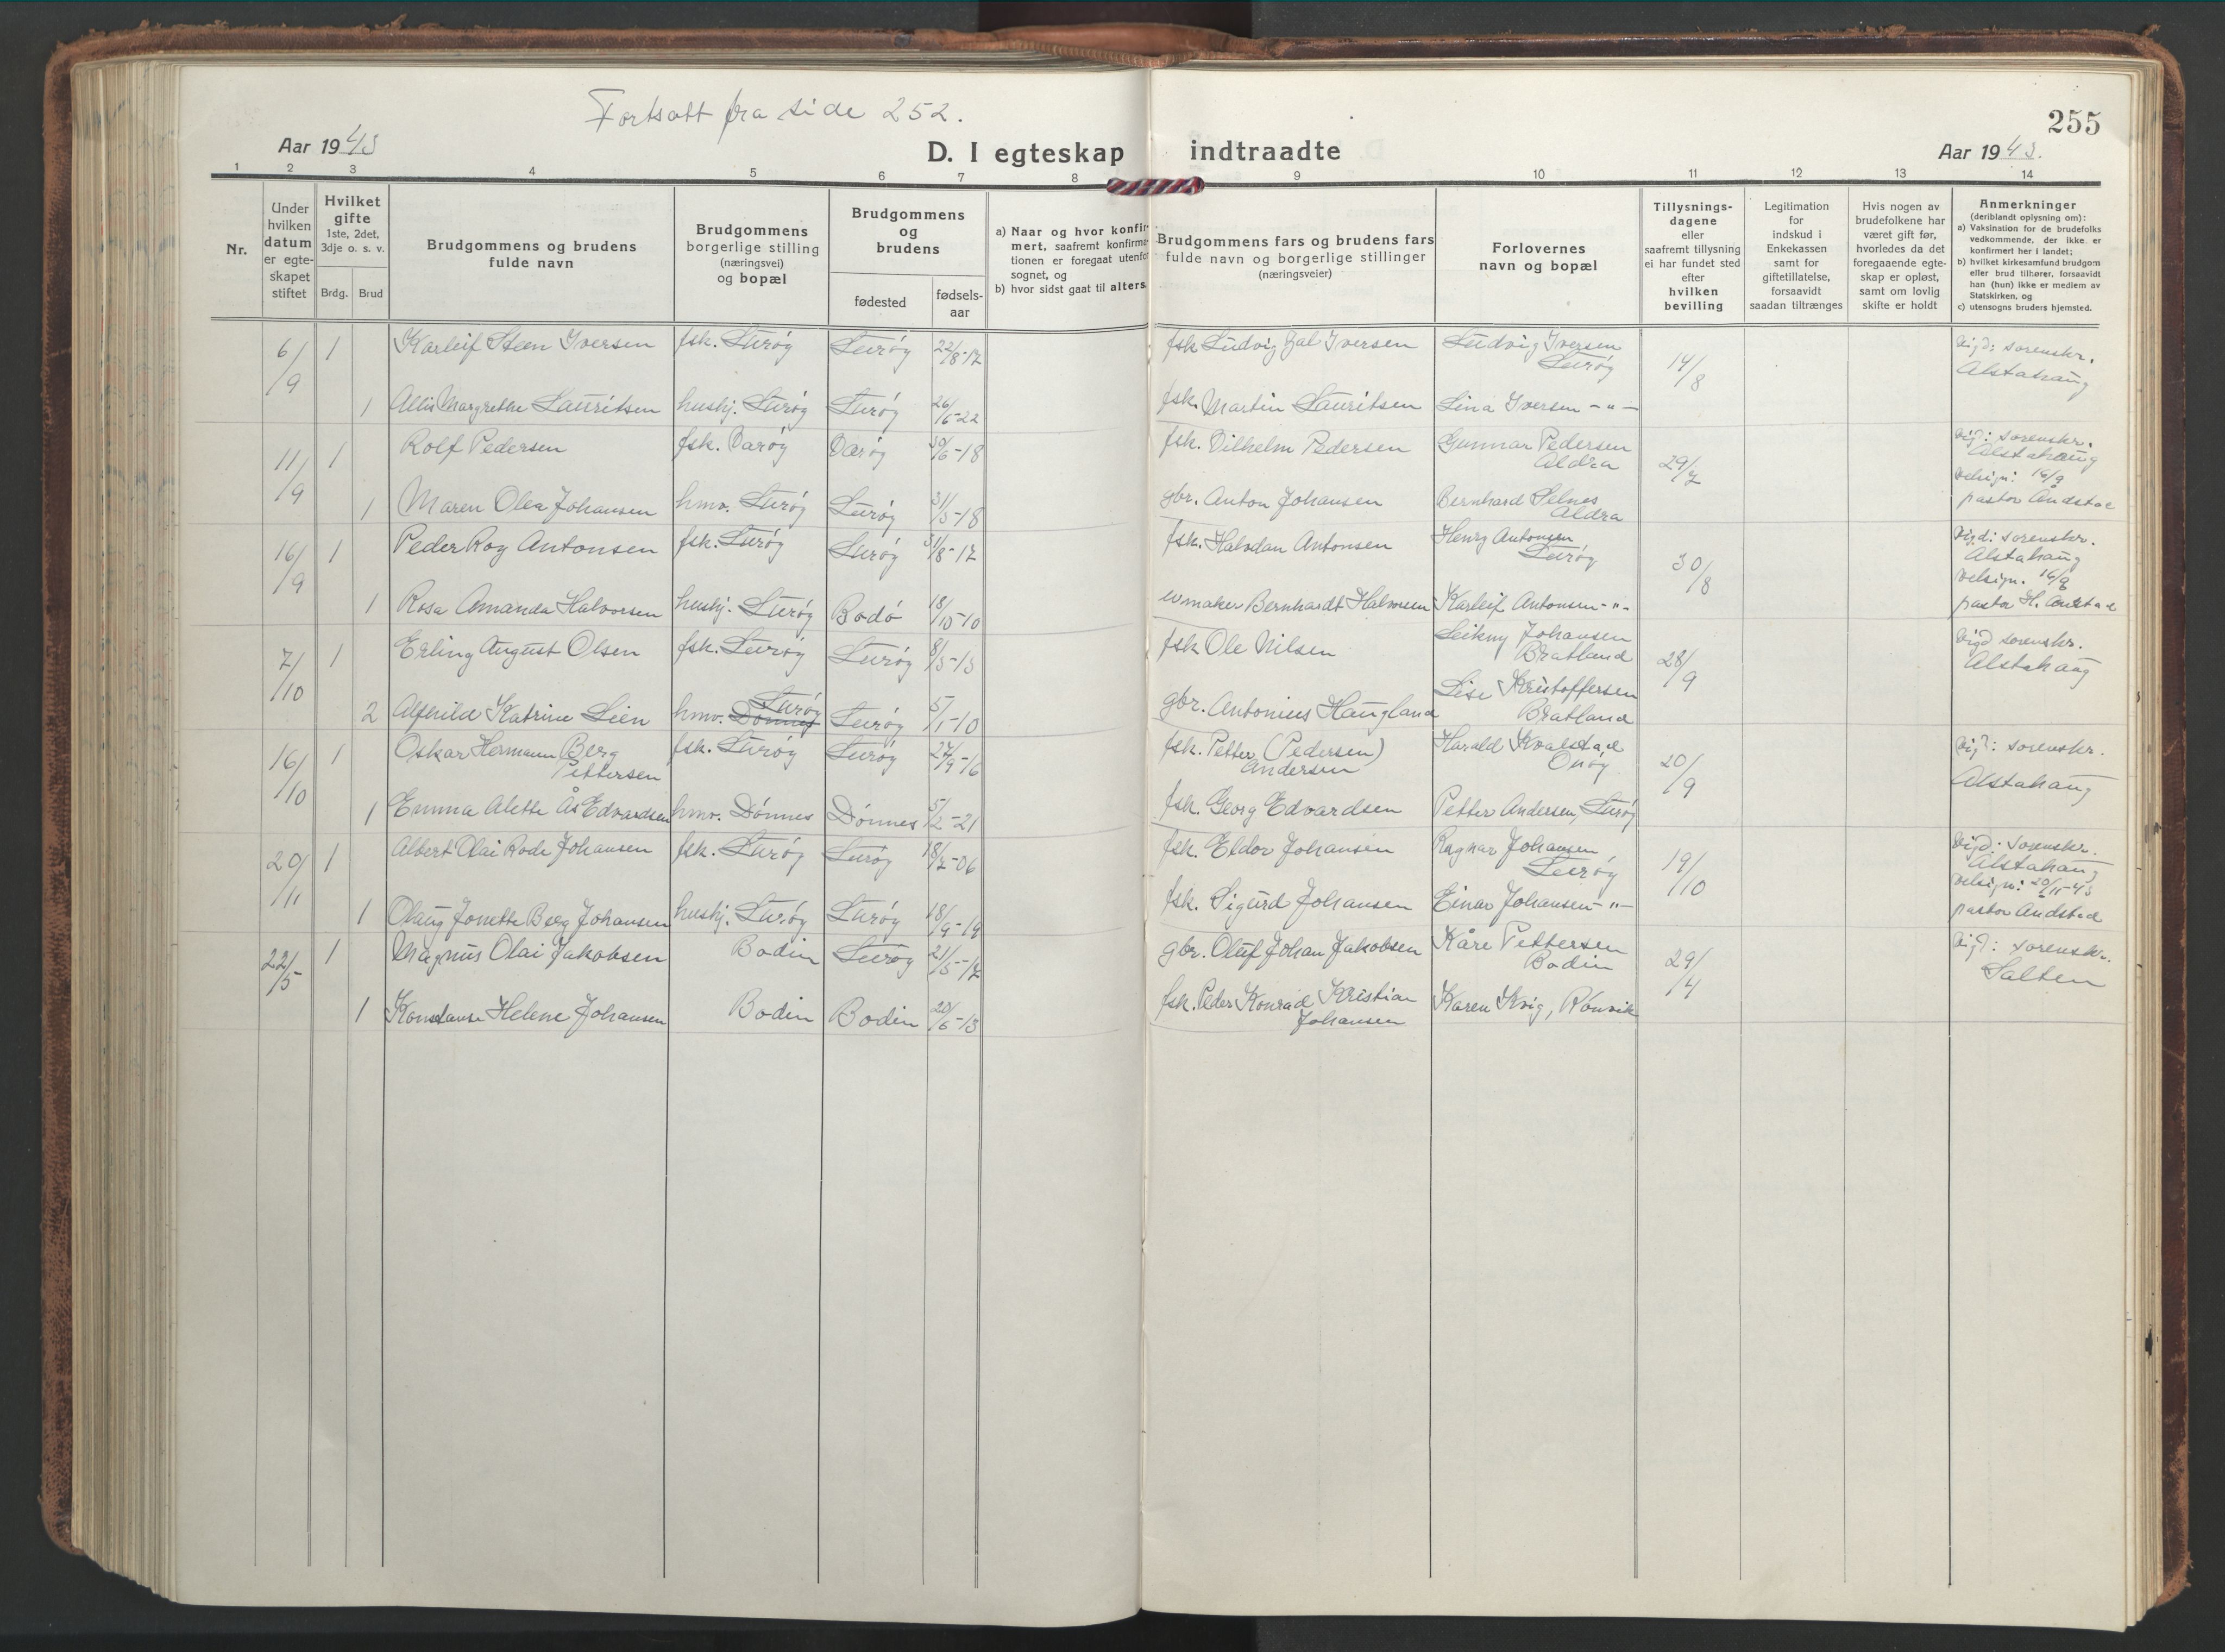 Fortsatt fra side 252.
255
Aar 1943
D. I egteskap indtraadte
Aar 1943.
1 2 3 4 5 6 7 8 9 10 11 12 13 14
Nr.
Under
hvilken
datum
er egte-
skapet
stiftet
Hvilket
gifte
1ste, 2det,
3dje o. s. v.
Brdg. Brud
Brudgommens og brudens
fulde navn
Brudgommens
borgerlige stilling
(næringsvei)
og bopæl
Brudgommens
og
brudens
fødested
fødsels-
aar
a) Naar og hvor konfir-
mert, saafremt konfirma-
tionen er foregaat utenfor
sognet, og
b) hvor sidst gaat til alters.
Brudgommens fars og brudens fars
fulde navn og borgerlige stillinger
(næringsveier)
Forlovernes
navn og bopæl
Tillysnings-
dagene
eller
saafremt tillysning
ei har fundet sted
efter
hvilken
bevilling
Legitimation
for
indskud i
Enkekassen
samt for
giftetillatelse,
forsaavidt
saadan tiltrænges
Hvis nogen av
brudefolkene har
været gift før,
hvorledes da det
foregaaende egte-
skap er opløst,
samt om lovlig
skifte er holdt
Anmerkninger
(deriblandt oplysning om):
a) Vaksination for de brudefolks
vedkommende, der ikke er
konfirmert her i landet;
b) hvilket kirkesamfund brudgom
eller brud tilhører, forsaavidt
han (hun) ikke er medlem av
Statskirken, og
c) utensogns bruders hjemsted.
6/9 1 Karleif Steen Iversen fsk. Lurøy Lurøy 22/8-17 fsk Ludvig Zal Iversen Ludvig Iversen 14/8 Vigd: sorenskr.
Lurøy Alstahaug
1 Allis Margrethe Lauritsen hushj. Lurøy Lurøy 26/6-22 fsk. Martin Lauritsen Lina Iversen -"-
11/9 1 Rolf Pedersen fsk. Varøy Varøy 30/6-18 fsk. Vilhelm Pedersen Gunnar Pedersen 29/7 Vigd: sorenskr.
Aldra Alstahaug
velsign: 16/9
1 Maren Olea Johansen hmv. Lurøy Lurøy 31/5-18 gbr. Anton Johansen Bernhard Selnes pastor Andstad
Aldra
16/9 1 Peder Roy Antonsen fsk. Lurøy Lurøy 31/8-17 fsk. Halvdan Antonsen Henry Antonsen 30/8 Vigd: sorenskr.
Lurøy Alstahaug
velsign. 16/9
1 Rosa Amanda Halvorsen hushj. Lurøy Bodø 18/10-10 urmaker Bernhardt Halvorsen Karleif Antonsen -"- pastor H. Andstad
7/10 1 Erling August Olsen fsk. Lurøy Lurøy 8/3-13 fsk Ole Nilsen Leikny Johansen 28/9 Vigd sorenskr.
Bratland Alstahaug
Lurøy
2 Alfhild Katrine Lien hmv. Dønnes Lurøy 5/1-10 gbr. Antonius Haugland Lise Kristoffersen
Bratland
16/10 1 Oskar Hermann Berg fsk. Lurøy Lurøy 27/9-16 fsk. Petter (Pedersen) Harald Kvalstad 20/9 Vigd: sorenskr.
Pettersen Andersen Onøy Alstahaug
1 Emma Alette Ås Edvardsen hmv. Dønnes Dønnes 5/2-21 fsk. Georg Edvardsen Petter Andersen, Lurøy
20/11 1 Albert Olai Rode Johansen fsk. Lurøy Lurøy 18/7-06 fsk. Eldor Johansen Ragnar Johansen 19/10 Vigd: sorenskr.
Lurøy Alstahaug
velsign: 20/11-43
1 Olaug Jonette Berg Johansen hushj. Lurøy Lurøy 18/9-19 fsk. Sigurd Johansen Einar Johansen -"- pastor Andstad
22/5 1 Magnus Olai Jakobsen Bodin Lurøy 21/5-17 gbr. Oluf Johan Jakobsen Kåre Pettersen 29/4 Vigd: sorenskr.
Bodin Salten
1 Konstanse Helene Johansen Bodin Bodin 20/6-13 fsk. Peder Konrad Kristian Karen Kvig, Rønvik
Johansen